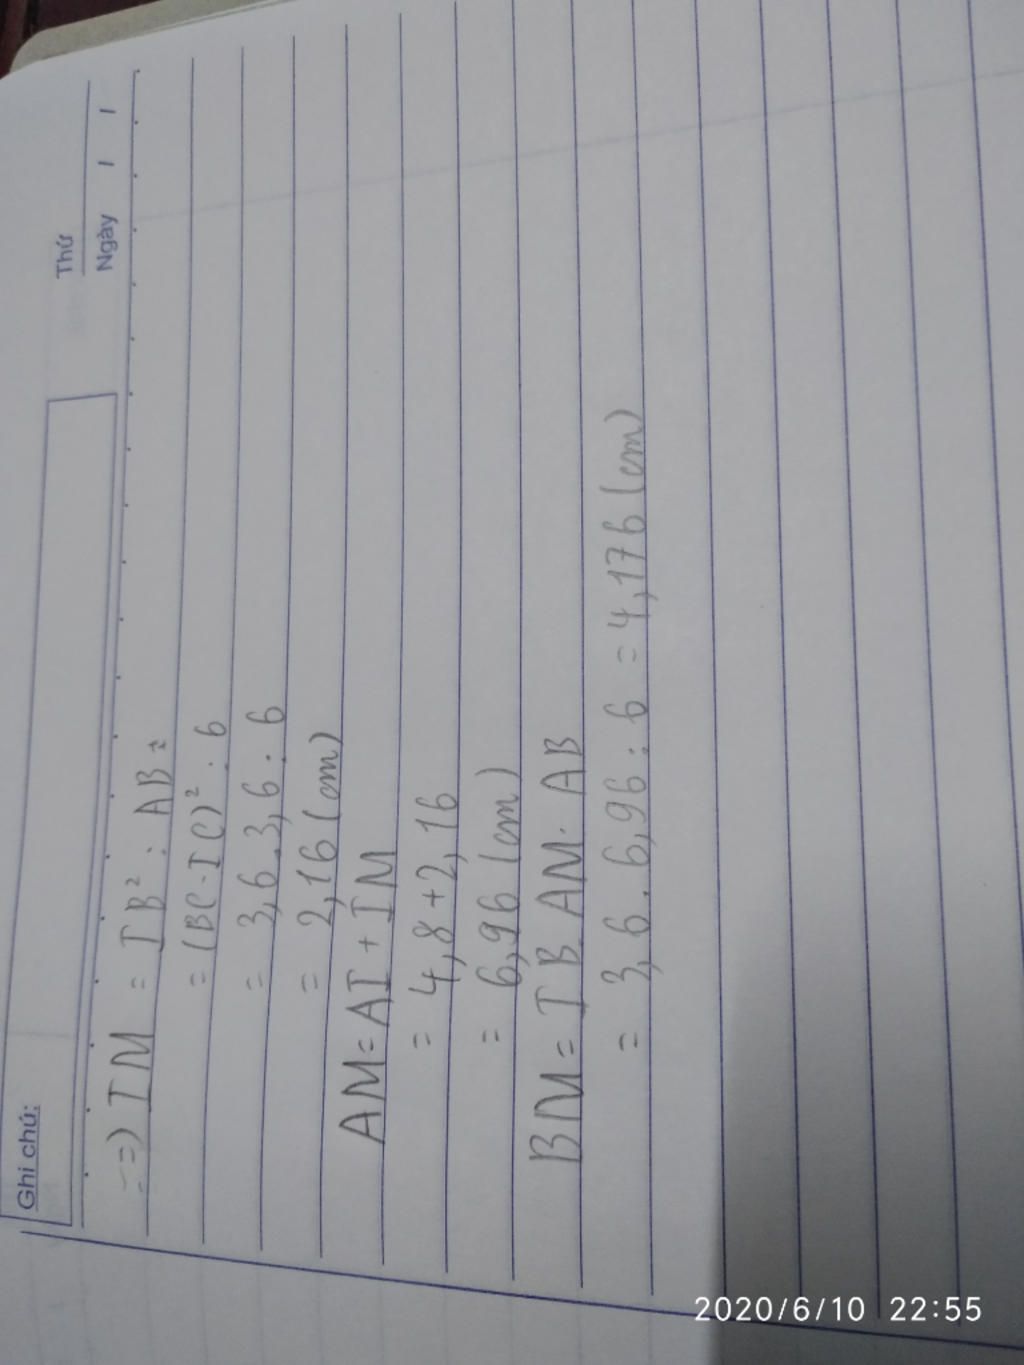 Ghi chú:
Thứ
Ngày / /
=) IM = IB² : AB
= (BC-IC)² : 6
= 3,6 . 3,6 : 6
= 2,16 (cm)
AM = AI + IM
= 4,8 + 2,16
= 6,96 (cm)
BM = IB . AM . AB
= 3,6 . 6,96 : 6 = 4,176 (cm)
2020/6/10 22:55